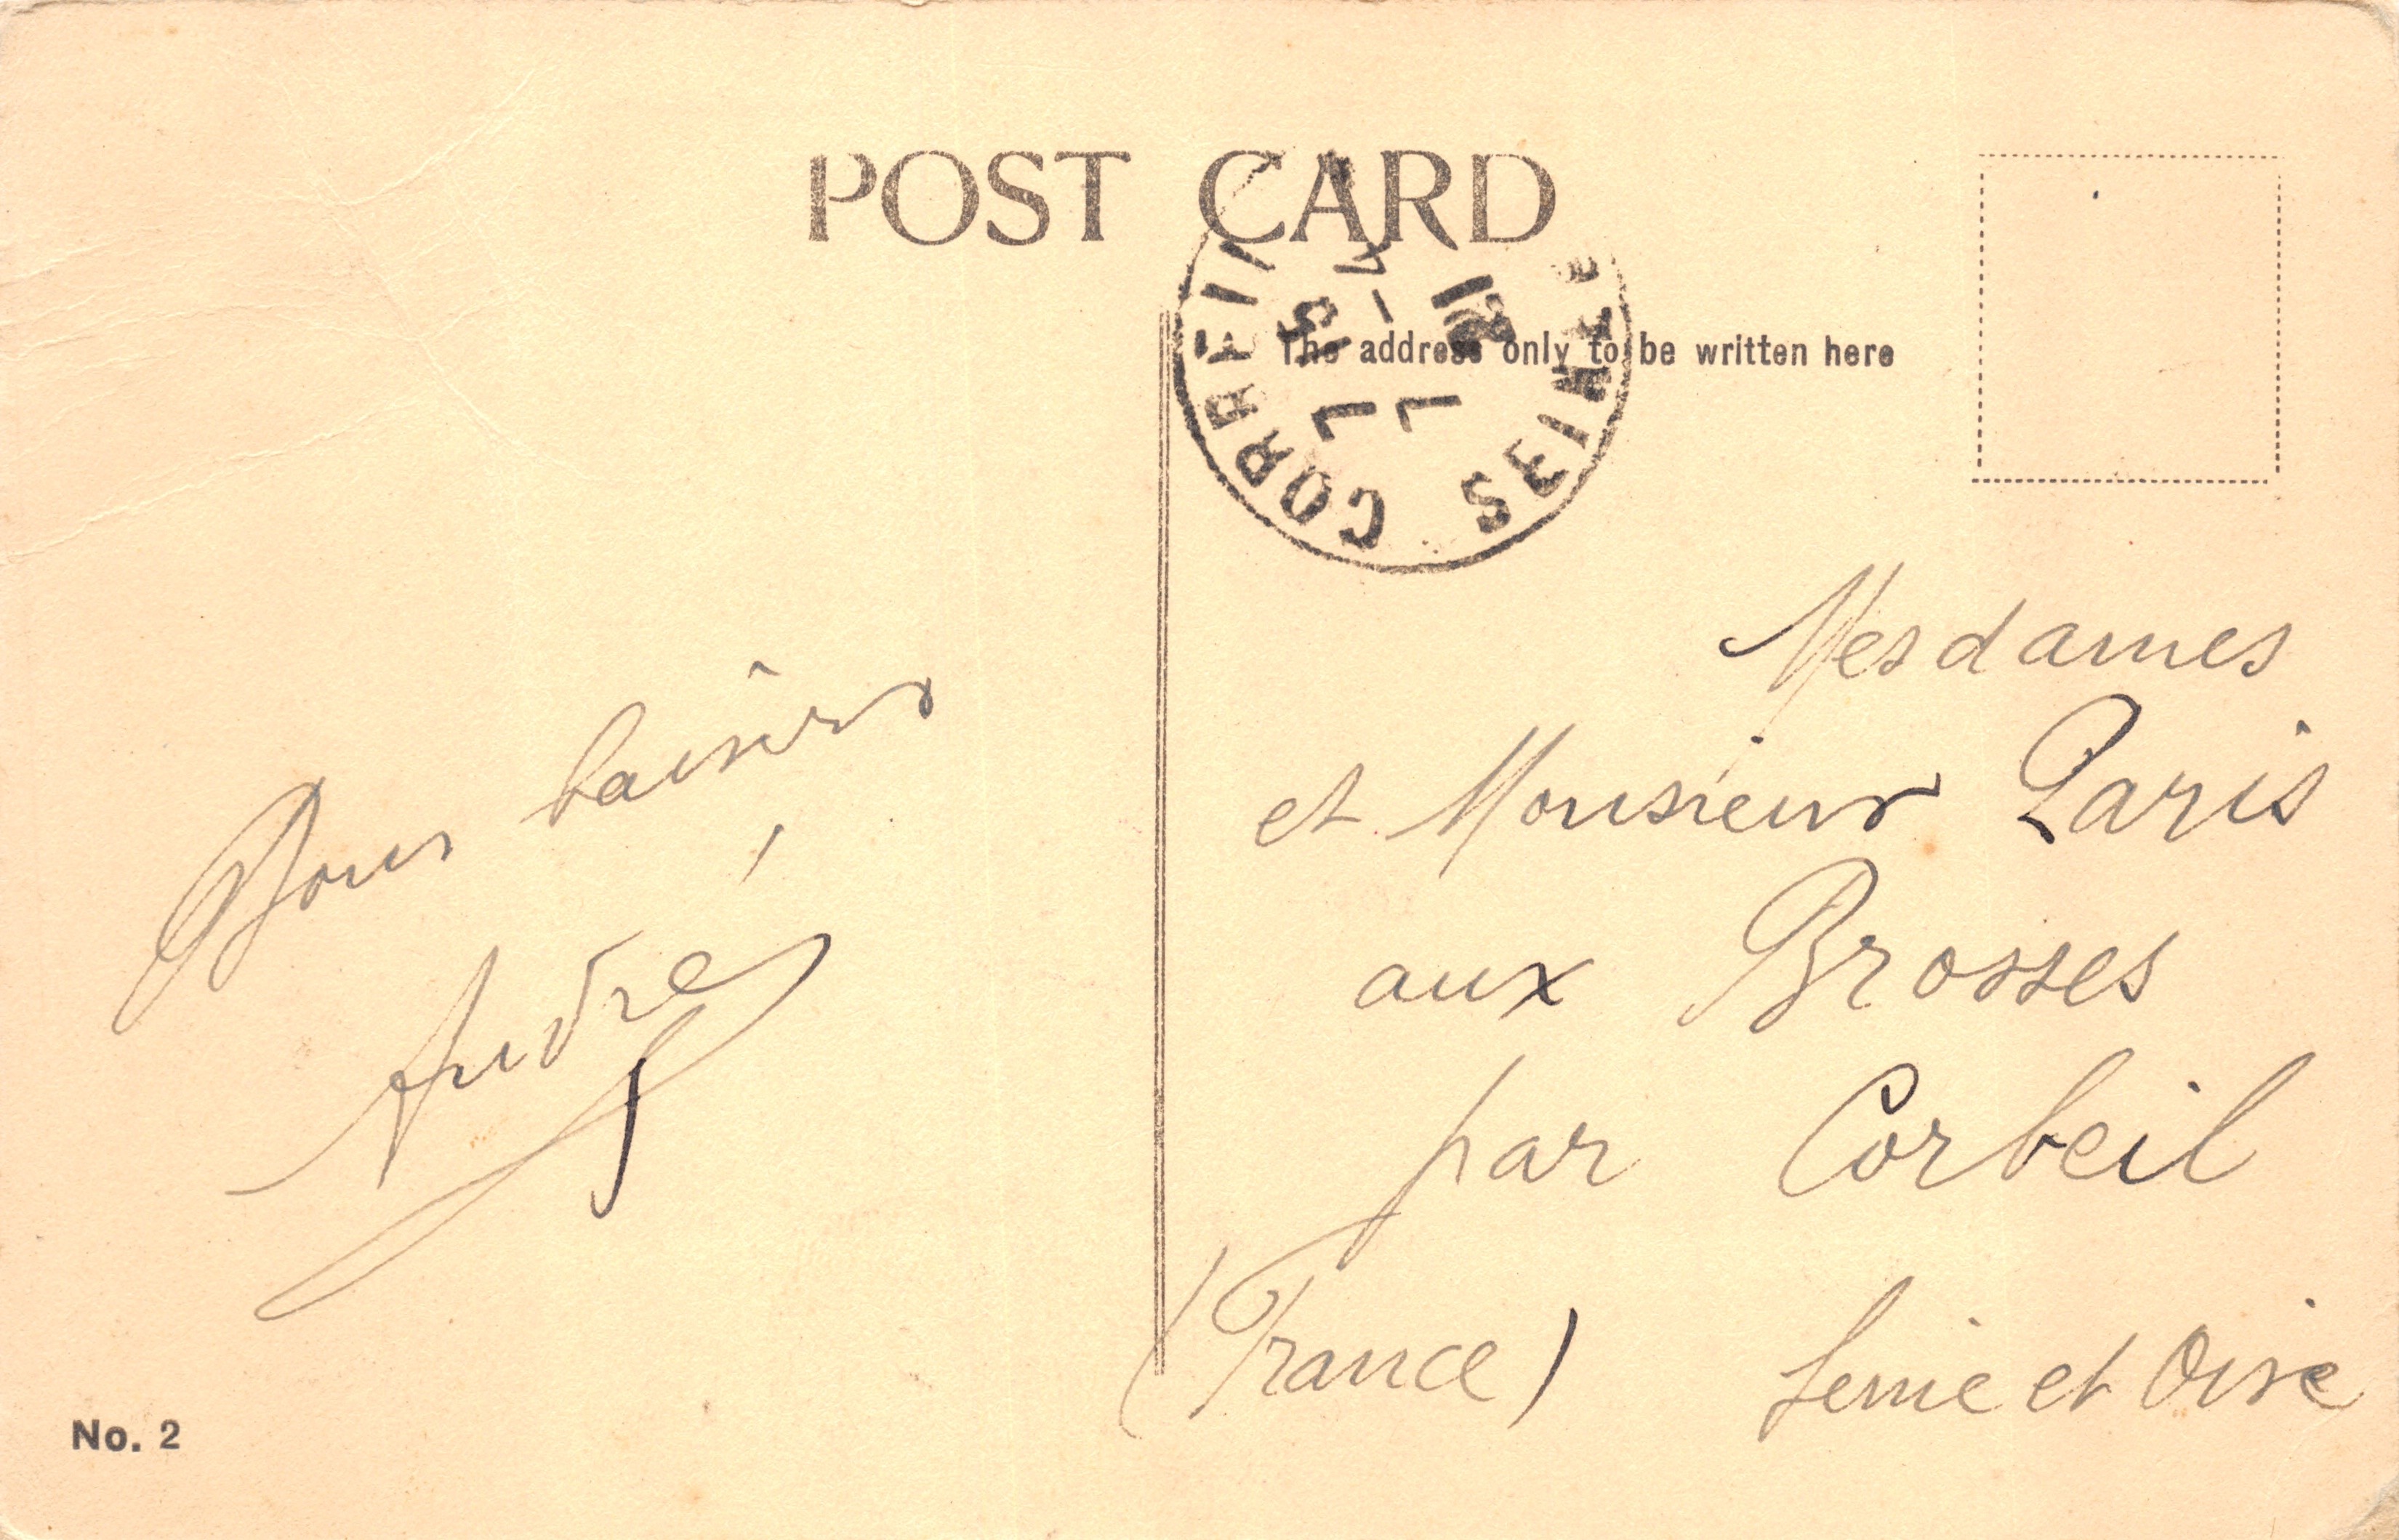 POST CARD
The address only to be written here
CORBEIL
SEINE
Bons baisers
André
Mesdames
et Monsieur Paris
aux Brosses
par Corbeil
(France) Seine et Oise
No. 2